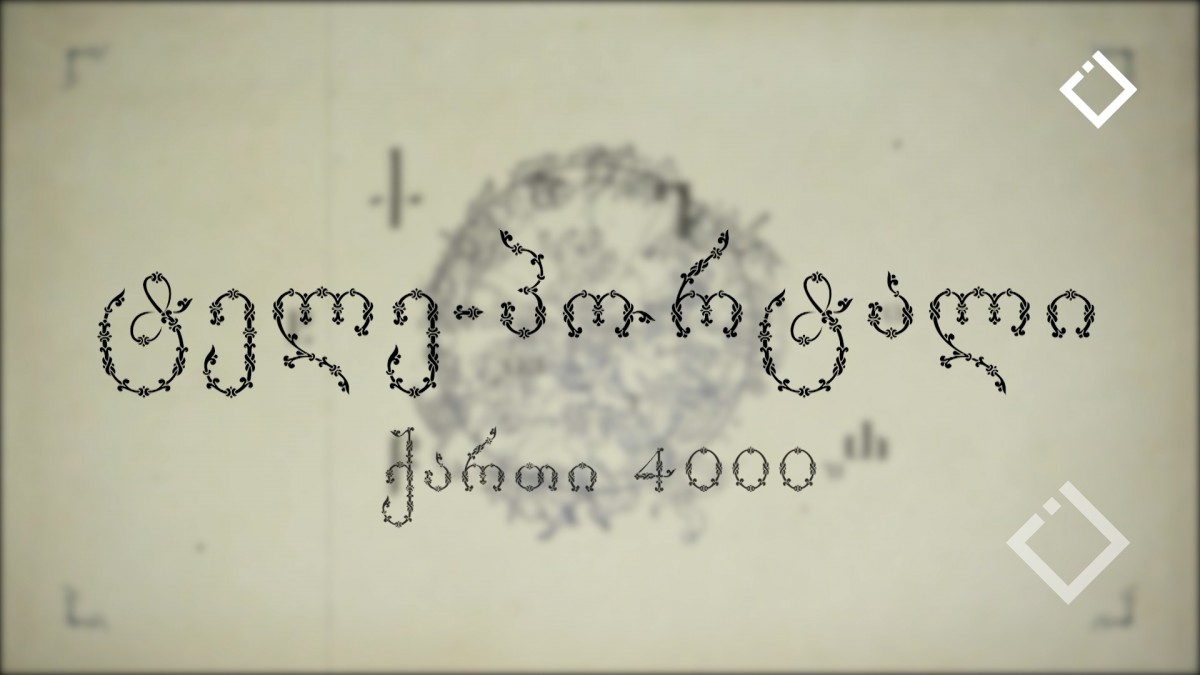 ტელე-პორტალი
ქართი 4000